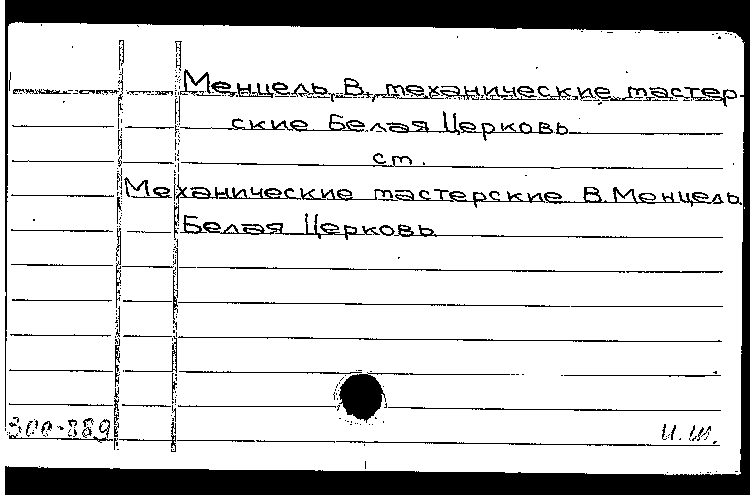 Менцель, В., механические мастер-
ские Белая Церковь
ст.
Механические мастерские В. Менцель,
Белая Церковь
300-889
И. Ш.